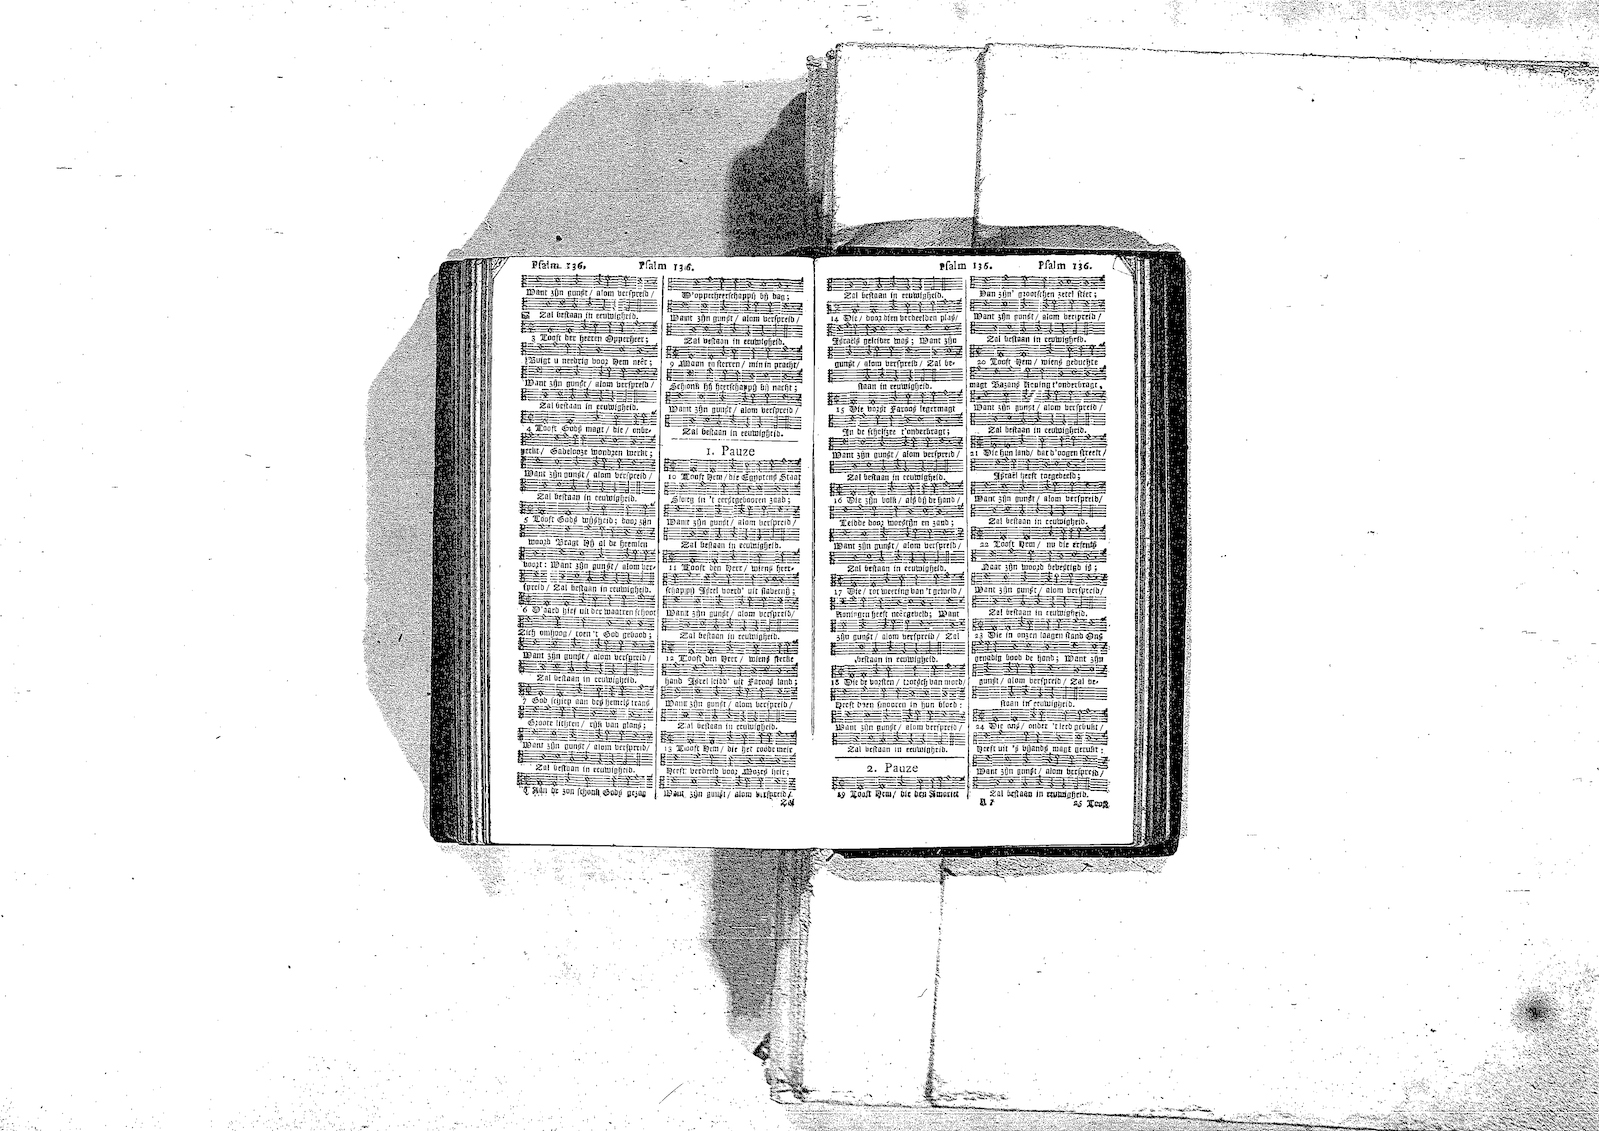 Psalm 136.
Want zijn gunst / alom verspreid /
Zal bestaan in eeuwigheid.
3 Looft der heeren Opperheer;
Buigt u needrig voor Hem neêr;
Want zijn gunst / alom verspreid /
Zal bestaan in eeuwigheid.
4 Looft Gods magt / die / onbe-
perkt / Gadelooze wondren werkt;
Want zijn gunst / alom verspreid /
Zal bestaan in eeuwigheid.
5 Looft Gods wijsheid; door zijn
woord Bragt Hij al de heemlen
voort: Want zijn gunst / alom ver-
spreid / Zal bestaan in eeuwigheid.
6 D'aard hief uit de waatren
Zich omhoog / toen 't God gebood;
Want zijn gunst / alom verspreid /
Zal bestaan in eeuwigheid.
7 God schiep aan des hemels trans
Groote lichten / rijk van glans;
Want zijn gunst / alom verspreid /
Zal bestaan in eeuwigheid.
8 Aan de zon schonk Gods
Psalm 136.
D'opperheerschappij bij dag;
Want zijn gunst / alom verspreid /
Zal bestaan in eeuwigheid.
9 Maan en sterren / min in pracht /
Schonk hij heerschappij bij nacht;
Want zijn gunst / alom verspreid /
Zal bestaan in eeuwigheid.
1. Pauze
10 Looft Hem / die Egyptens Staat
Sloeg in 't eerstgebooren zaad;
Want zijn gunst / alom verspreid /
Zal bestaan in eeuwigheid.
11 Looft den Heer / wiens heer-
schappij Isrel voerd' uit slavernij;
Want zijn gunst / alom verspreid /
Zal bestaan in eeuwigheid.
12 Looft den Heer / wiens sterke
hand Isrel leidd' uit Faroos land;
Want zijn gunst / alom verspreid /
Zal bestaan in eeuwigheid.
13 Looft Hem / die het roode meir
Heeft verdeeld voor Mozes heir;
Want zijn gunst / alom verspreid /
Zal
Psalm 136.
Zal bestaan in eeuwigheid.
14 Die / door dien verdeelden plas /
Israëls geleider was; Want zijn
gunst / alom verspreid / Zal be-
staan in eeuwigheid.
15 Die vorst Faroos legermagt
In de schelfzee t'onderbragt;
Want zijn gunst / alom verspreid /
Zal bestaan in eeuwigheid.
16 Die zijn volk / als bij de hand /
Leidde door woestijn en zand;
Want zijn gunst / alom verspreid /
Zal bestaan in eeuwigheid.
17 Die / tot weering van 't geweld /
Koningen heeft neêrgeveld; Want
zijn gunst / alom verspreid / Zal
bestaan in eeuwigheid.
18 Die de vorsten / trotsch van moed /
Heeft doen smooren in hun bloed:
Want zijn gunst / alom verspreid /
Zal bestaan in eeuwigheid.
2. Pauze
19 Looft Hem / die den Amoriet
Psalm 136.
Van zijn' grootschen zetel stiet;
Want zijn gunst / alom verspreid /
Zal bestaan in eeuwigheid.
20 Looft Hem / wiens geduchte
magt Bazans Koning t'onderbragt,
Want zijn gunst / alom verspreid /
Zal bestaan in eeuwigheid.
21 Die hun land / dat d'oogen streelt /
Israël heeft toegedeeld;
Want zijn gunst / alom verspreid /
Zal bestaan in eeuwigheid.
22 Looft Hem / nu die erfenis
Naar zijn woord bevestigd is;
Want zijn gunst / alom verspreid /
Zal bestaan in eeuwigheid.
23 Die in onzen laagen stand Ons
genadig bood de hand; Want zijn
gunst / alom verspreid / Zal be-
staan in eeuwigheid.
24 Die ons / onder 't leed gebukt /
Heeft uit 's vijands magt gerukt:
Want zijn gunst / alom verspreid /
Zal bestaan in eeuwigheid.
25 Looft